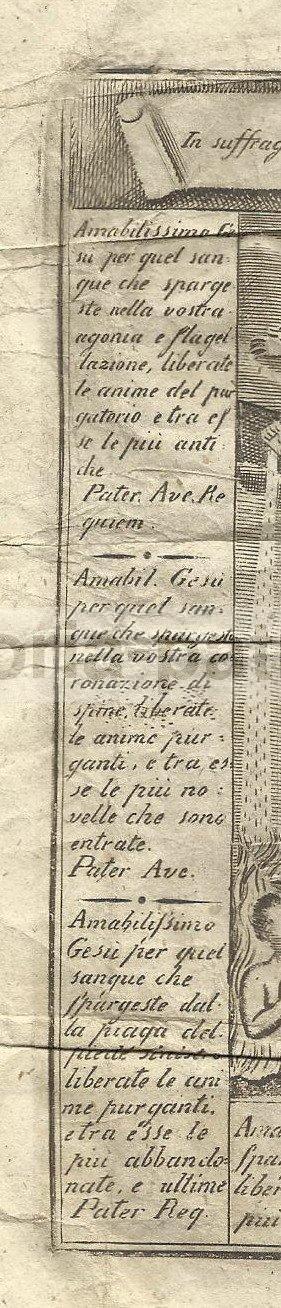 In suffrag
Amabilissimo Ge
su per quel san-
gue che sparge
ste nella vostra
agonia e flagel
lazione, liberate
le anime del pur
gatorio e tra eſ
se le più anti
che
Pater. Ave. Re
quiem.
Amabil. Gesù
per quel san-
que che spargeste
nella vostra co-
ronazione di
spine, liberate
le anime pur=
ganti, e tra es-
se le più no=
velle che sono
entrate.
Pater Ave.
Amabiliſsimo
Gesù per quel
sangue che
ſpargeste dal-
la piaga del
piede sinistro
liberate le ani
me purganti,
e tra esse le
più abbando-
nate, e ultime
Pater Req.
Ama
ſpar
liber
più